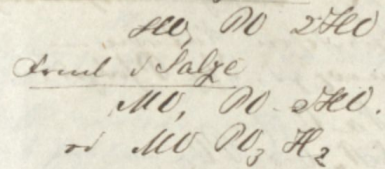 HO, PO 2HO
Forml d Salze
MO, PO 2HO.
od MO PO3 H2